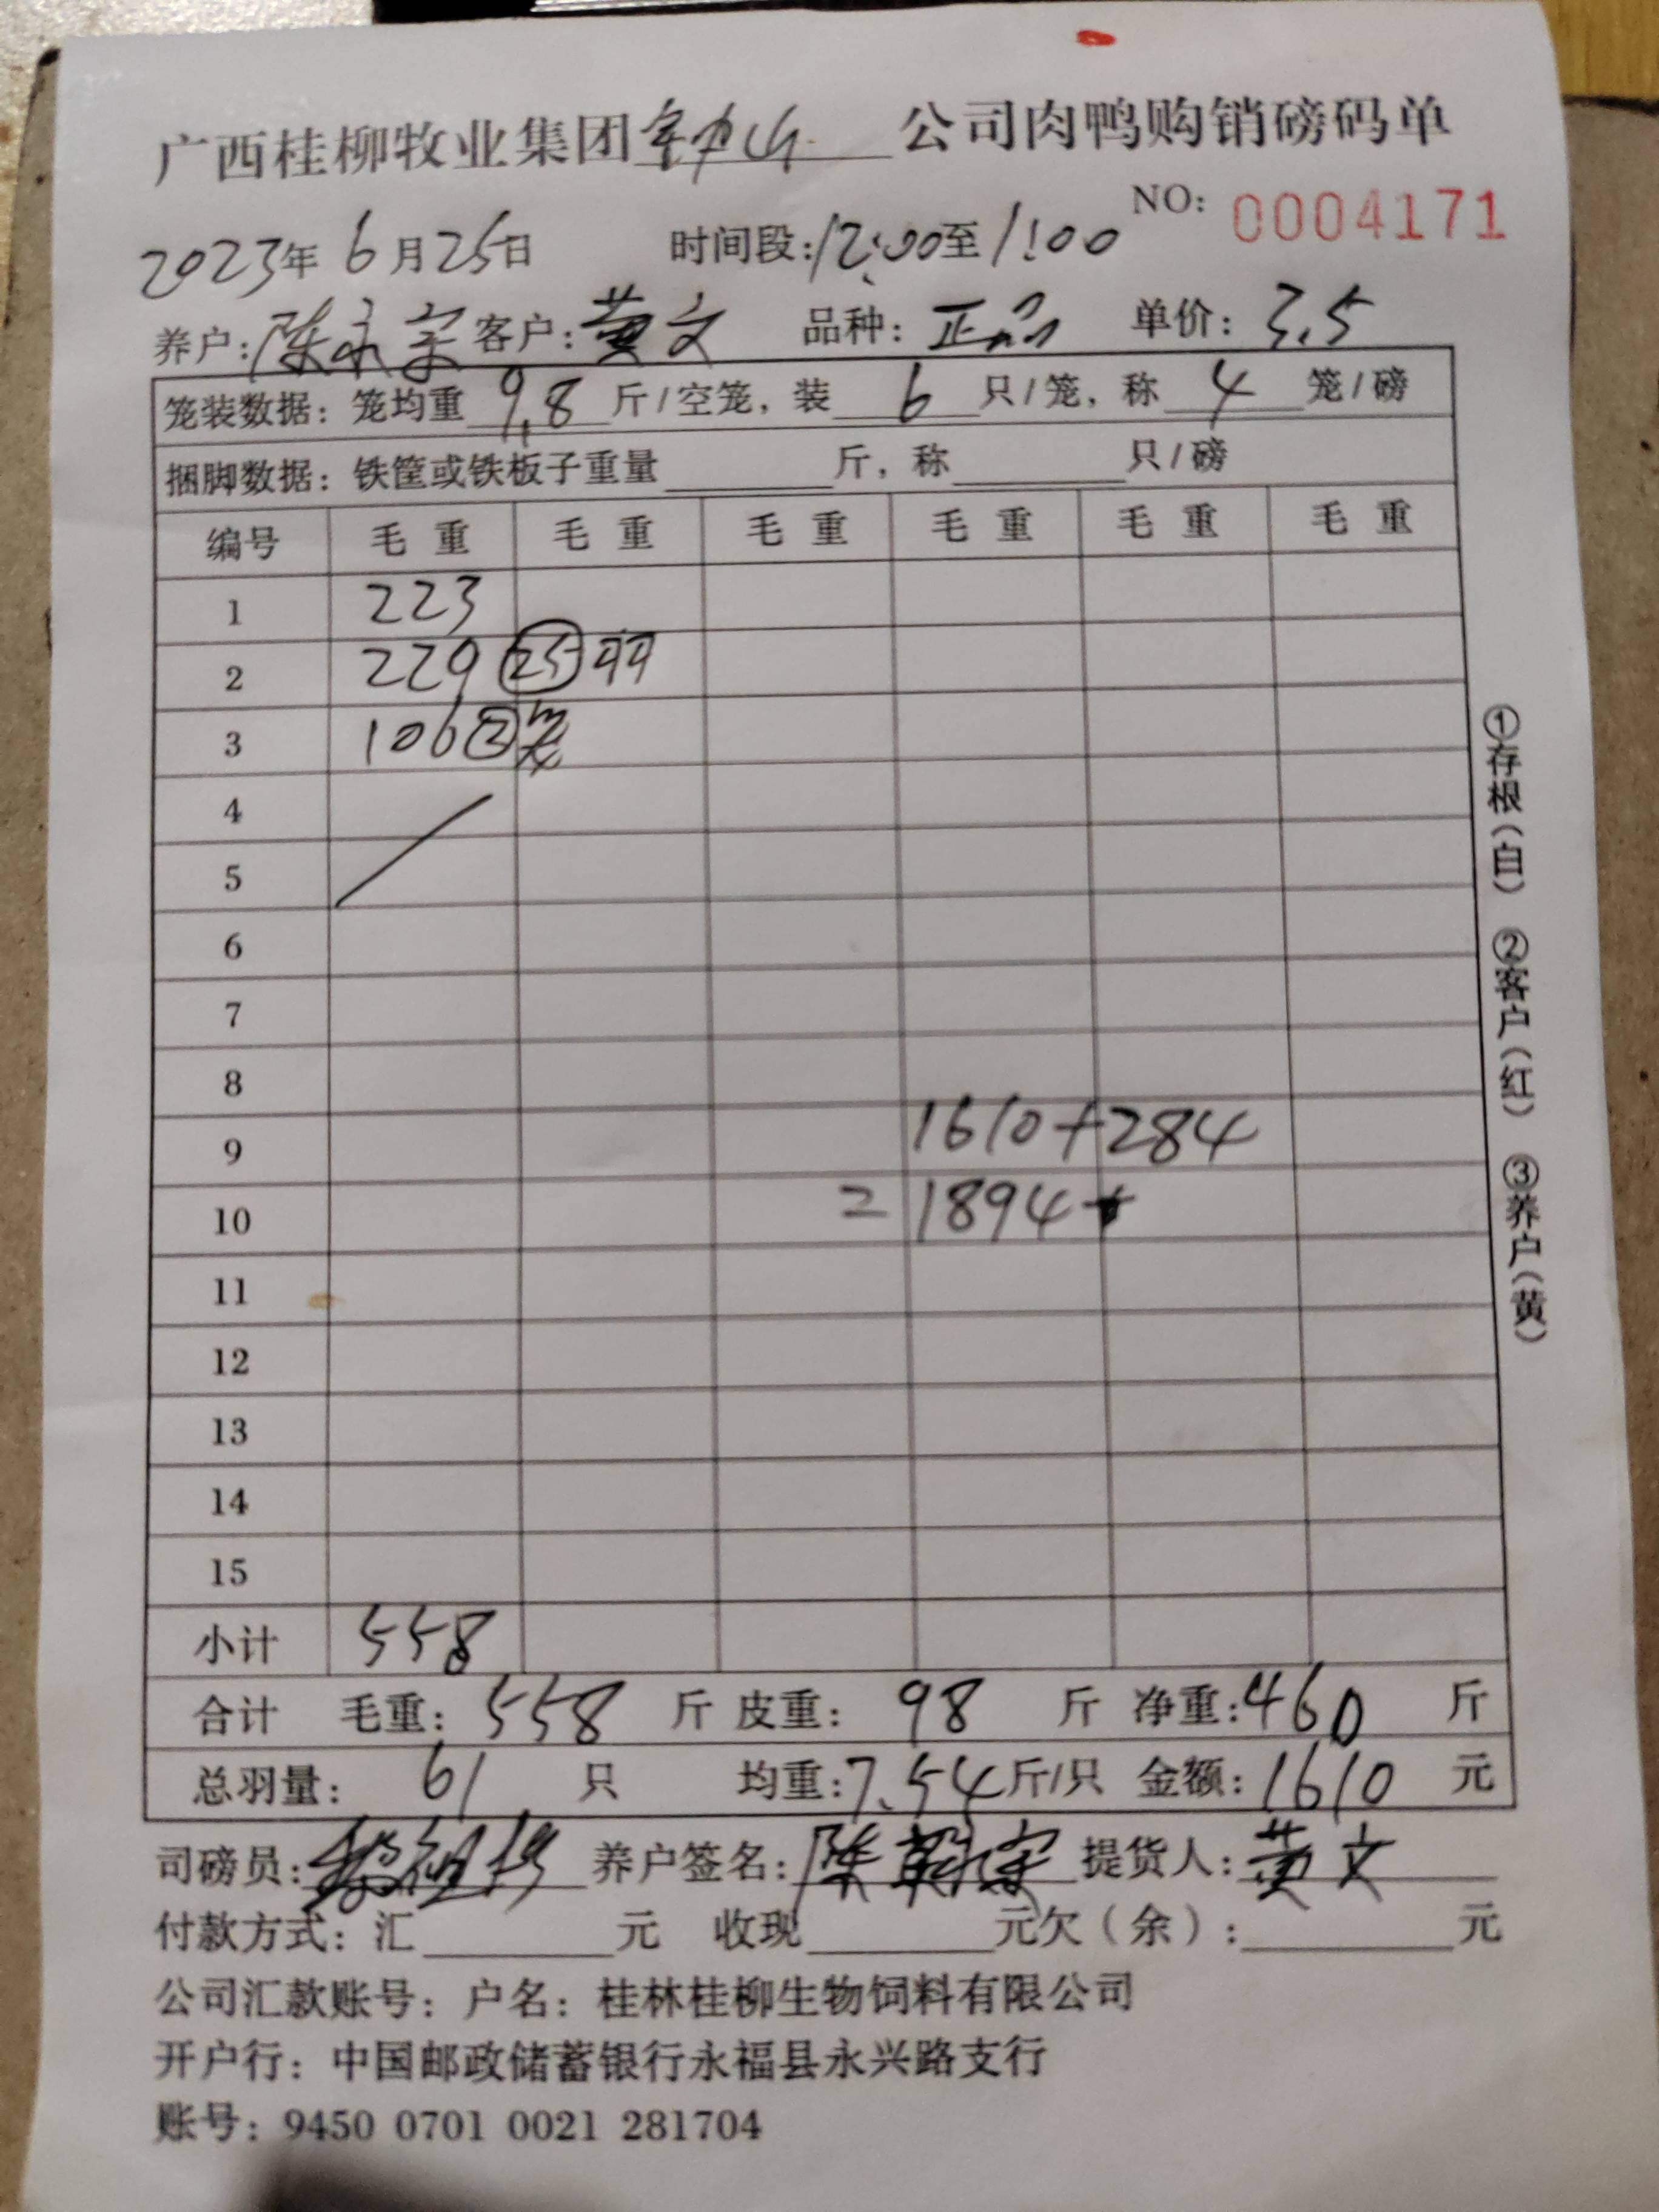 广西桂柳牧业集团 公司肉鸭购销磅码单
NO: 0004171
2023年 6月25日 时间段:12:00至1:00
养户: 陈 客户: 黄文 品种: 正品 单价: 3.5
笼装数据: 笼均重 9.8 斤/空笼, 装 6 只/笼, 称 4 笼/磅
捆脚数据: 铁筐或铁板子重量 斤, 称 只/磅
编号 毛重 毛重 毛重 毛重 毛重 毛重
1 223
2 229 25 羽
3 106 2 笼
4
5
6
7
8
9 1610+284
10 =1894
11
12
13
14
15
小计 558
合计 毛重: 558 斤 皮重: 98 斤 净重:460 斤
总羽量: 61 只 均重:7.54斤/只 金额:1610 元
司磅员: 养户签名: 陈 提货人: 黄文
付款方式: 汇 元 收现 元欠(余): 元
公司汇款账号: 户名: 桂林桂柳生物饲料有限公司
开户行: 中国邮政储蓄银行永福县永兴路支行
账号: 9450 0701 0021 281704
①存根(白) ②客户(红) ③养户(黄)